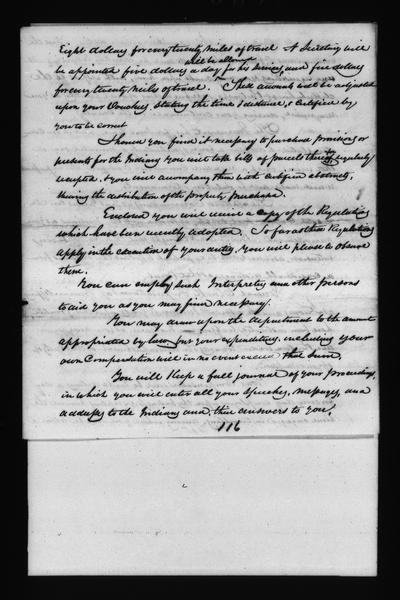 Eight dollars for every twenty miles of travel. A Secretary will
be appointed five dollars a day for his services, and five dollars
will be allowed
for every twenty miles of travel. These accounts will be adjusted
upon your Vouchers, stating the time & distance, & certified by
you to be correct
Should you find it necessary to purchase provisions or
presents for the Indians you will take bills of parcels thereof regularly
receipted, & you will accompany them with certified abstracts,
shewing the distribution of the property purchased.
Enclosed you will receive a copy of the Regulations
which have been recently adopted. So far as these Regulations
apply in the execution of your duties, you will please to observe
them.
You can employ such Interpreters and other persons
to aid you as you may find necessary.
You may draw upon the department to the amount
appropriated by law, but your expenditures, including your
own Compensation will in no event exceed that sum.
You will keep a full journal of your proceedings,
in which you will enter all your Speeches, messages, and
addresses to the Indians and their answers to you.
116